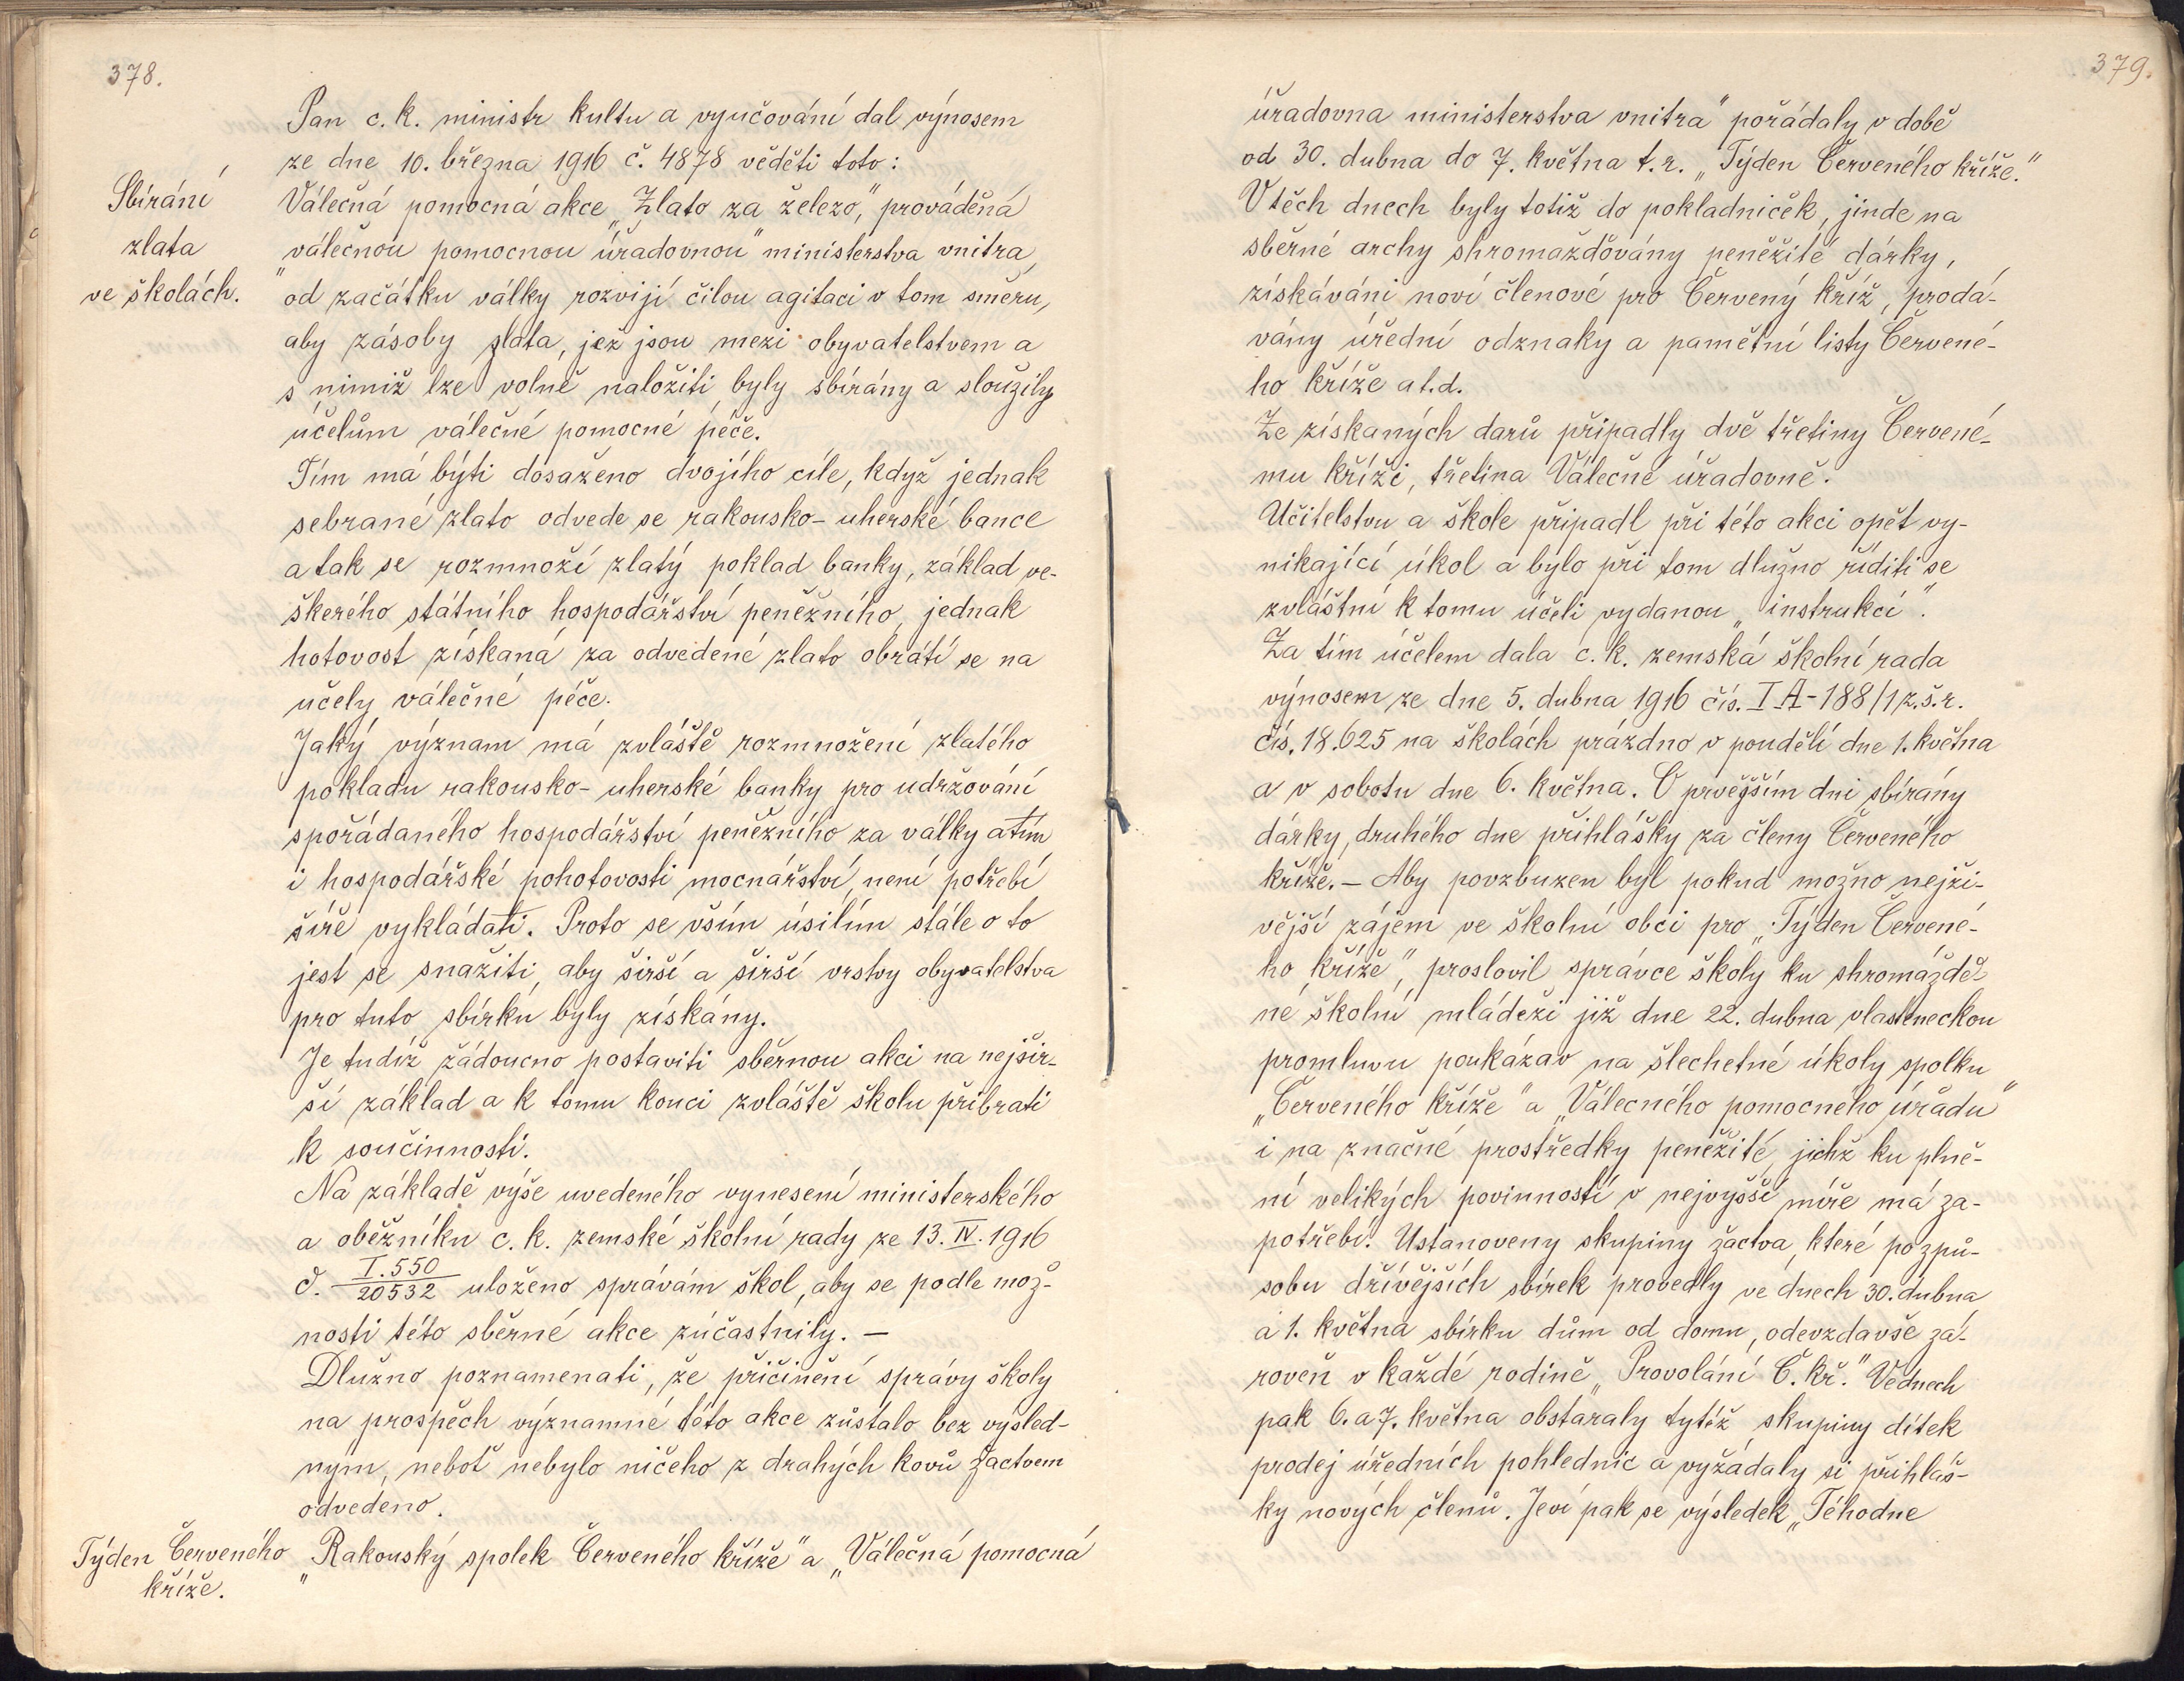 378.
Pan c. k. ministr kultu a vyučování dal výnosem
ze dne 10. března 1916 č. 4878 věděti toto:
Sbírání
zlata
ve školách.
Válečná pomocná akce „Zlato za železo", prováděná
„válečnou pomocnou úřadovnou" ministerstva vnitra,
od začátku války rozvijí čilou agitaci v tom směru,
aby zásoby zlata, jež jsou mezi obyvatelstvem a
s nimiž lze volně naložiti, byly sbírány a sloužily
účelům válečné pomocné péče.
Tím má býti dosaženo dvojího cíle, když jednak
sebrané zlato odvede se rakousko-uherské bance
a tak se rozmnoží zlatý poklad banky, základ ve-
škerého státního hospodářství peněžního, jednak
hotovost získaná za odvedené zlato obrátí se na
účely válečné péče.
Jaký význam má zvláště rozmnožení zlatého
pokladu rakousko-uherské banky pro udržování
spořádaného hospodářství peněžního za války a tím
i hospodářské pohotovosti mocnářství, není potřebí
šíře vykládati. Proto se vším úsilím stále o to
jest se snažiti, aby širší a širší vrstvy obyvatelstva
pro tuto sbírku byly získány.
Je tudíž žádoucno postaviti sběrnou akci na nejšir-
ší základ a k tomu konci zvláště školu přibrati
k součinnosti.
Na základě výše uvedeného vynesení ministerského
a oběžníku c. k. zemské školní rady ze 13. IV. 1916
č. I.550/20532 uloženo správám škol, aby se podle mož-
nosti této sběrné akce zúčastnily. —
Dlužno poznamenati, že přičinění správy školy
na prospěch významné této akce zůstalo bez výsled-
ným, neboť nebylo ničeho z drahých kovů žactvem
odvedeno.
Týden Červeného
kříže.
„Rakouský spolek Červeného kříže" a „Válečná pomocná
379.
úřadovna ministerstva vnitra" pořádaly v době
od 30. dubna do 7. května t. r. „Týden Červeného kříže."
V těch dnech byly totiž do pokladniček, jinde na
sběrné archy shromažďovány peněžité dárky,
získáváni noví členové pro Červený kříž, prodá-
vány úřední odznaky a pamětní listy Červené-
ho kříže a t. d.
Ze získaných darů připadly dvě třetiny Červené-
mu kříži, třetina Válečné úřadovně.
Učitelstvu a škole připadl při této akci opět vy-
nikající úkol a bylo při tom dlužno říditi se
zvláštní k tomu účeli vydanou „instrukcí".
Za tím účelem dala c. k. zemská školní rada
výnosem ze dne 5. dubna 1916 čís. I A-188/1 z.š.r.
čís. 18.625 na školách prázdno v pondělí dne 1. května
a v sobotu dne 6. května. O prvějším dni sbírány
dárky, druhého dne přihlášky za členy Červeného
kříže. — Aby povzbuzen byl pokud možno nejži-
vější zájem ve školní obci pro „Týden Červené-
ho kříže", proslovil správce školy ku shromáždě-
né školní mládeži již dne 22. dubna vlasteneckou
promluvu poukázav na šlechetné úkoly spolku
„Červeného kříže" a „Válečného pomocného úřadu"
i na značné prostředky peněžité, jichž ku plně-
ní velikých povinností v nejvyšší míře má za-
potřebí. Ustanoveny skupiny žactva, které po způ-
sobu dřívějších sbírek provedly ve dnech 30. dubna
a 1. května sbírku dům od domu, odevzdavše zá-
roveň v každé rodině „Provolání Č. kř." Ve dnech
pak 6. a 7. května obstaraly tytéž skupiny dítek
prodej úředních pohlednic a vyžádaly si přihláš-
ky nových členů. Jeví pak se výsledek „Téhodne